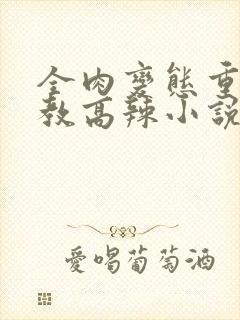 全肉變態重
教高辣小說
愛喝葡萄酒